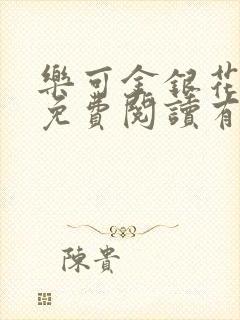 樂可金銀花
免費閱讀有
陳貴